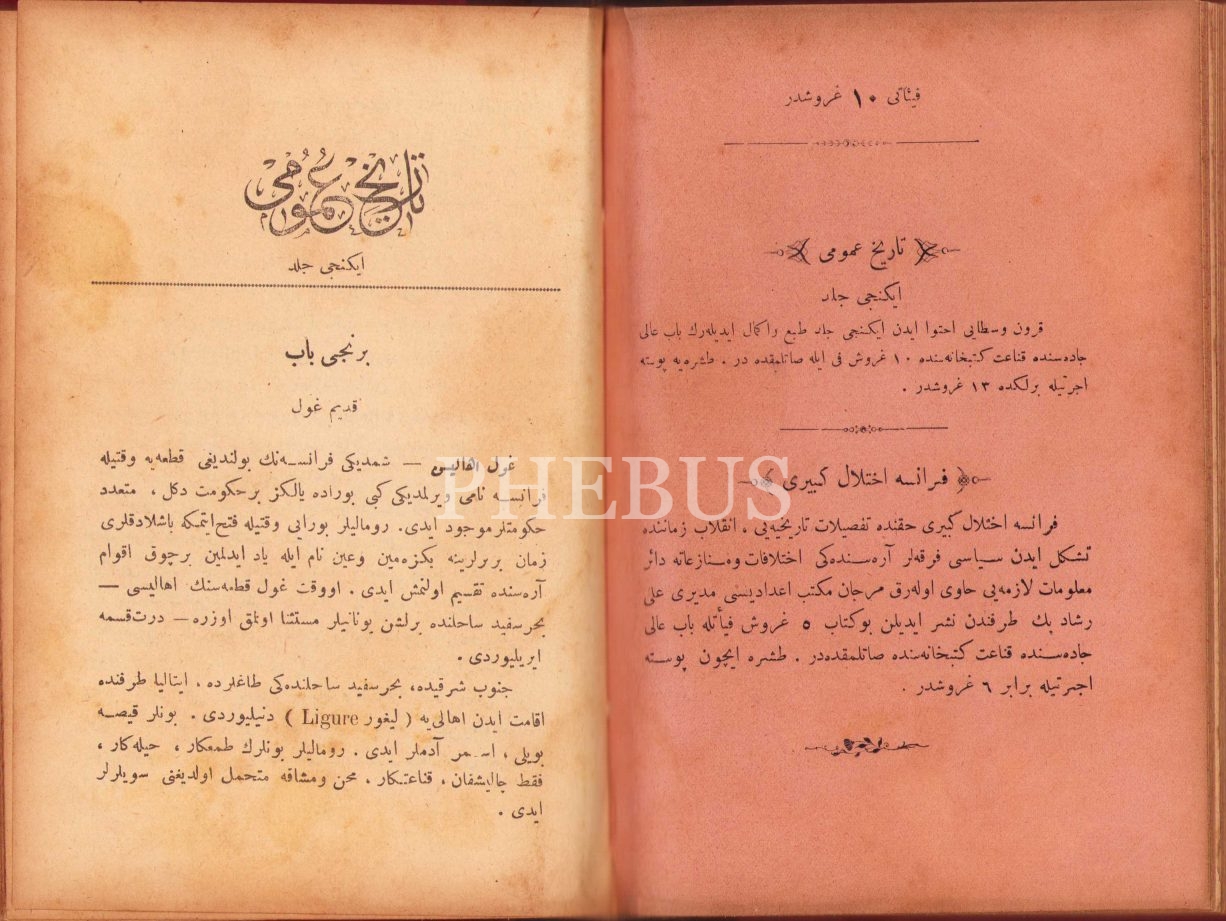 فیئاتی ۱۰ غروشدر
تاریخ عمومی
ایکنجی جلد
قرون وسطایی احتوا ایدن ایکنجی جلد طبع واکمال ایدیله‌رك باب عالی
جاده‌سنده قناعت کتبخانه‌سنده ۱۰ غروش فی ایله صاتلمقده در . طشره‌یه پوسته
اجرتیله برلکده ۱۳ غروشدر .
فرانسه اختلال کبیری
فرانسه اختلال کبیری حقنده تفصیلات تاریخیه‌یی ، انقلاب زماننده
تشکل ایدن سیاسی فرقه‌لر آره‌سنده‌کی اختلافات ومنازعاته دائر
معلومات لازمه‌یی حاوی اوله‌رق مرجان مکتب اعدادیسی مدیری علی
رشاد بك طرفندن نشر ایدیلن بوکتاب ٥ غروش فیأتله باب عالی
جاده‌سنده قناعت کتبخانه‌سنده صاتلمقده‌در . طشره ایچون پوسته
اجرتیله برابر ٦ غروشدر .
تاریخ عمومی
ایکنجی جلد
برنجی باب
قدیم غول
غول اهالیسی — شمدیکی فرانسه‌نك بولندیغی قطعه‌یه وقتیله
فرانسه نامی ویرلمدیکی کبی بوراده یالکز برحکومت دکل ، متعدد
حکومتلر موجود ایدی. رومالیلر بورایی وقتیله فتح ایتمکه باشلادقلری
زمان بربرلرینه بکزه‌مین وعین نام ایله یاد ایدلمین برچوق اقوام
آره‌سنده تقسیم اولنمش ایدی . اووقت غول قطعه‌سنك اهالیسی —
بحرسفید ساحلنده یرلشن یونانیلر مستثنا اولمق اوزره — درت قسمه
ایریلیوردی .
جنوب شرقیده، بحرسفید ساحلنده‌کی طاغلرده ، ایتالیا طرفنده
اقامت ایدن اهالی‌یه ( لیغور Ligure ) دنیلیوردی . بونلر قیصه
بویلی ، اسمر آدملر ایدی . رومالیلر بونلرك طمعکار ، حیله‌کار ،
فقط چالیشقان ، قناعتکار ، محن ومشاقه متحمل اولدیغنی سویلرلر
ایدی .
PHEBUS